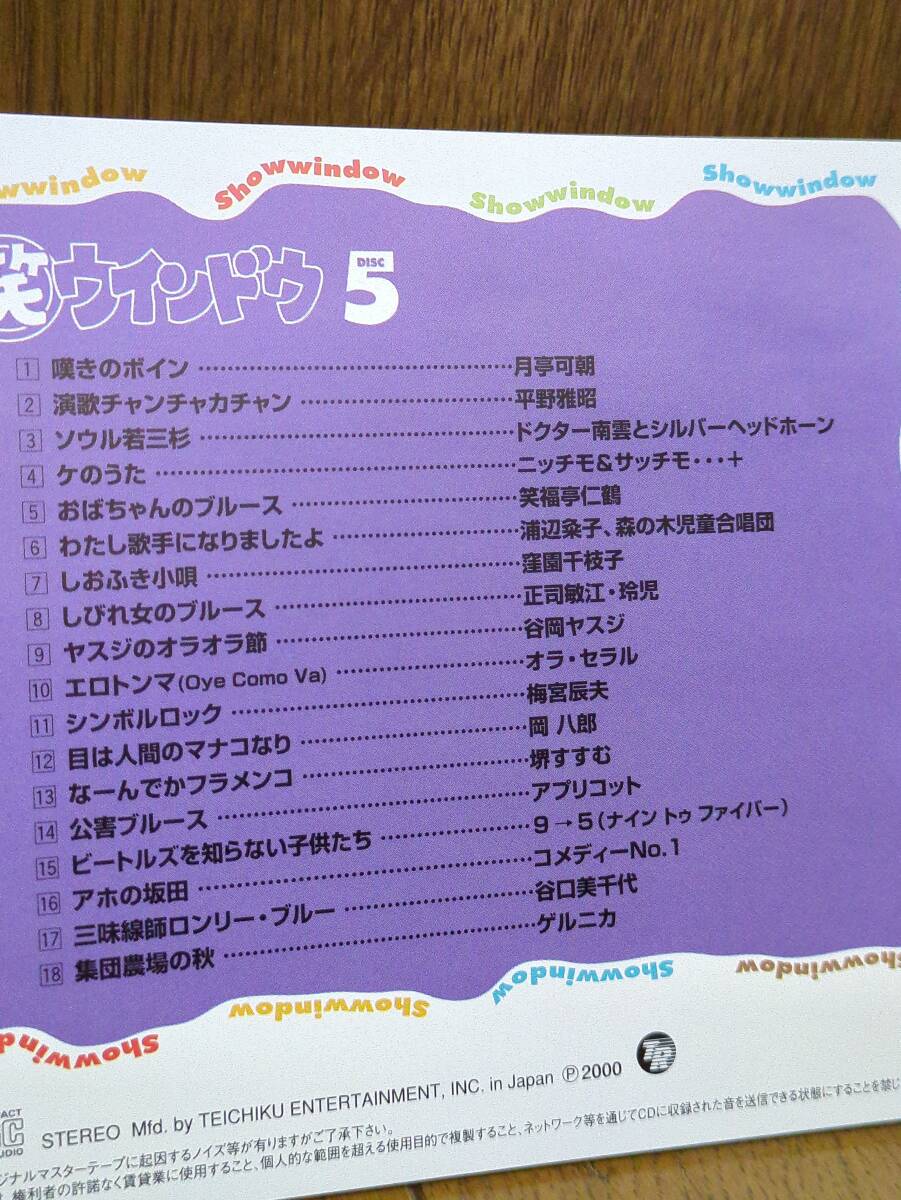 wwindow Showwindow Showwindow Showwindow
笑ウインドウ DISC 5
1 嘆きのボイン 月亭可朝
2 演歌チャンチャカチャン 平野雅昭
3 ソウル若三杉 ドクター南雲とシルバーヘッドホーン
4 ケのうた ニッチモ&サッチモ・・・+
5 おばちゃんのブルース 笑福亭仁鶴
6 わたし歌手になりましたよ 浦辺粂子、森の木児童合唱団
7 しおふき小唄 窪園千枝子
8 しびれ女のブルース 正司敏江・玲児
9 ヤスジのオラオラ節 谷岡ヤスジ
10 エロトンマ(Oye Como Va) オラ・セラル
11 シンボルロック 梅宮辰夫
12 目は人間のマナコなり 岡 八郎
13 なーんでかフラメンコ 堺すすむ
14 公害ブルース アプリコット
15 ビートルズを知らない子供たち 9→5(ナイン トゥ ファイバー)
16 アホの坂田 コメディーNo.1
17 三味線師ロンリー・ブルー 谷口美千代
18 集団農場の秋 ゲルニカ
Showwindow Showwindow Showwindow Showwindow
STEREO Mfd. by TEICHIKU ENTERTAINMENT, INC. in Japan Ⓟ2000
ジナルマスターテープに起因するノイズ等が有りますがご了承下さい。
権利者の許諾なく賃貸業に使用すること、個人的な範囲を超える使用目的で複製すること、ネットワーク等を通じてCDに収録された音を送信できる状態にすることを禁じ